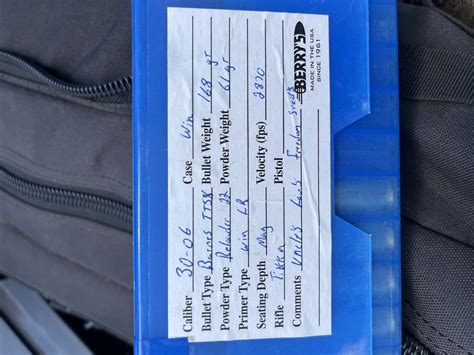 Caliber 30-06 Case Win
Bullet Type Barnes TTSX Bullet Weight 168 gr
Powder Type Reloader 22 Powder Weight 61 gr
Primer Type Win LR
Seating Depth Mag Velocity (fps) 2870
Rifle Tikka Pistol
Comments Uncle's Freedom
BERRY'S
MADE IN THE USA
SINCE 1961